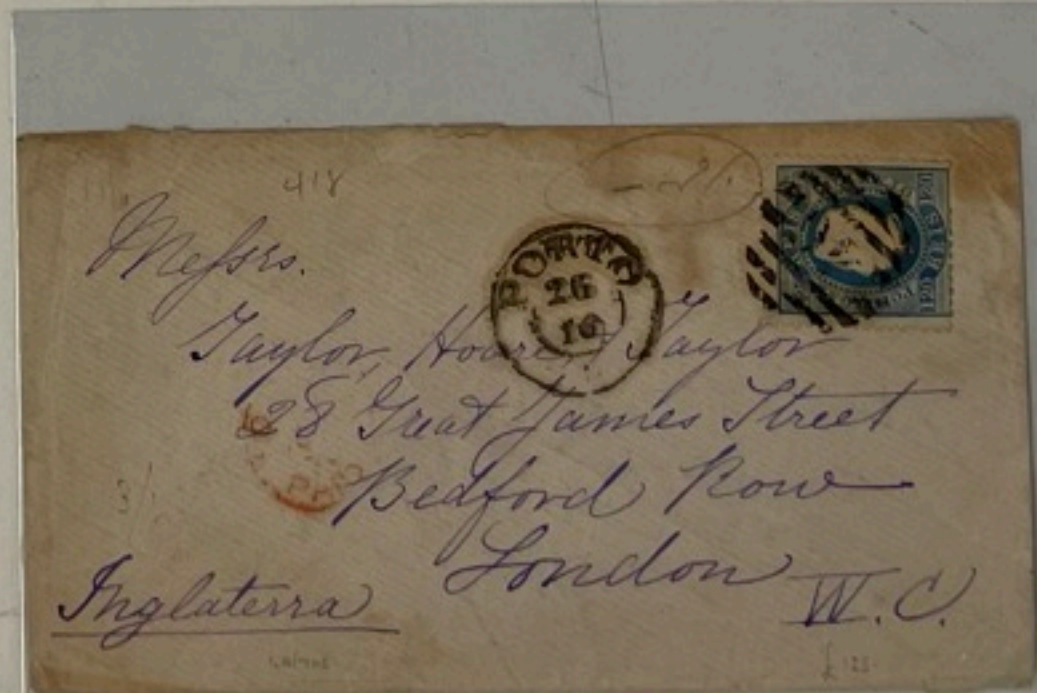 418
Messrs.
PORTO
26
10
120
Taylor, Hoare & Taylor
28 Great James Street
Bedford Row
London
W.C.
Inglaterra
3/
£125